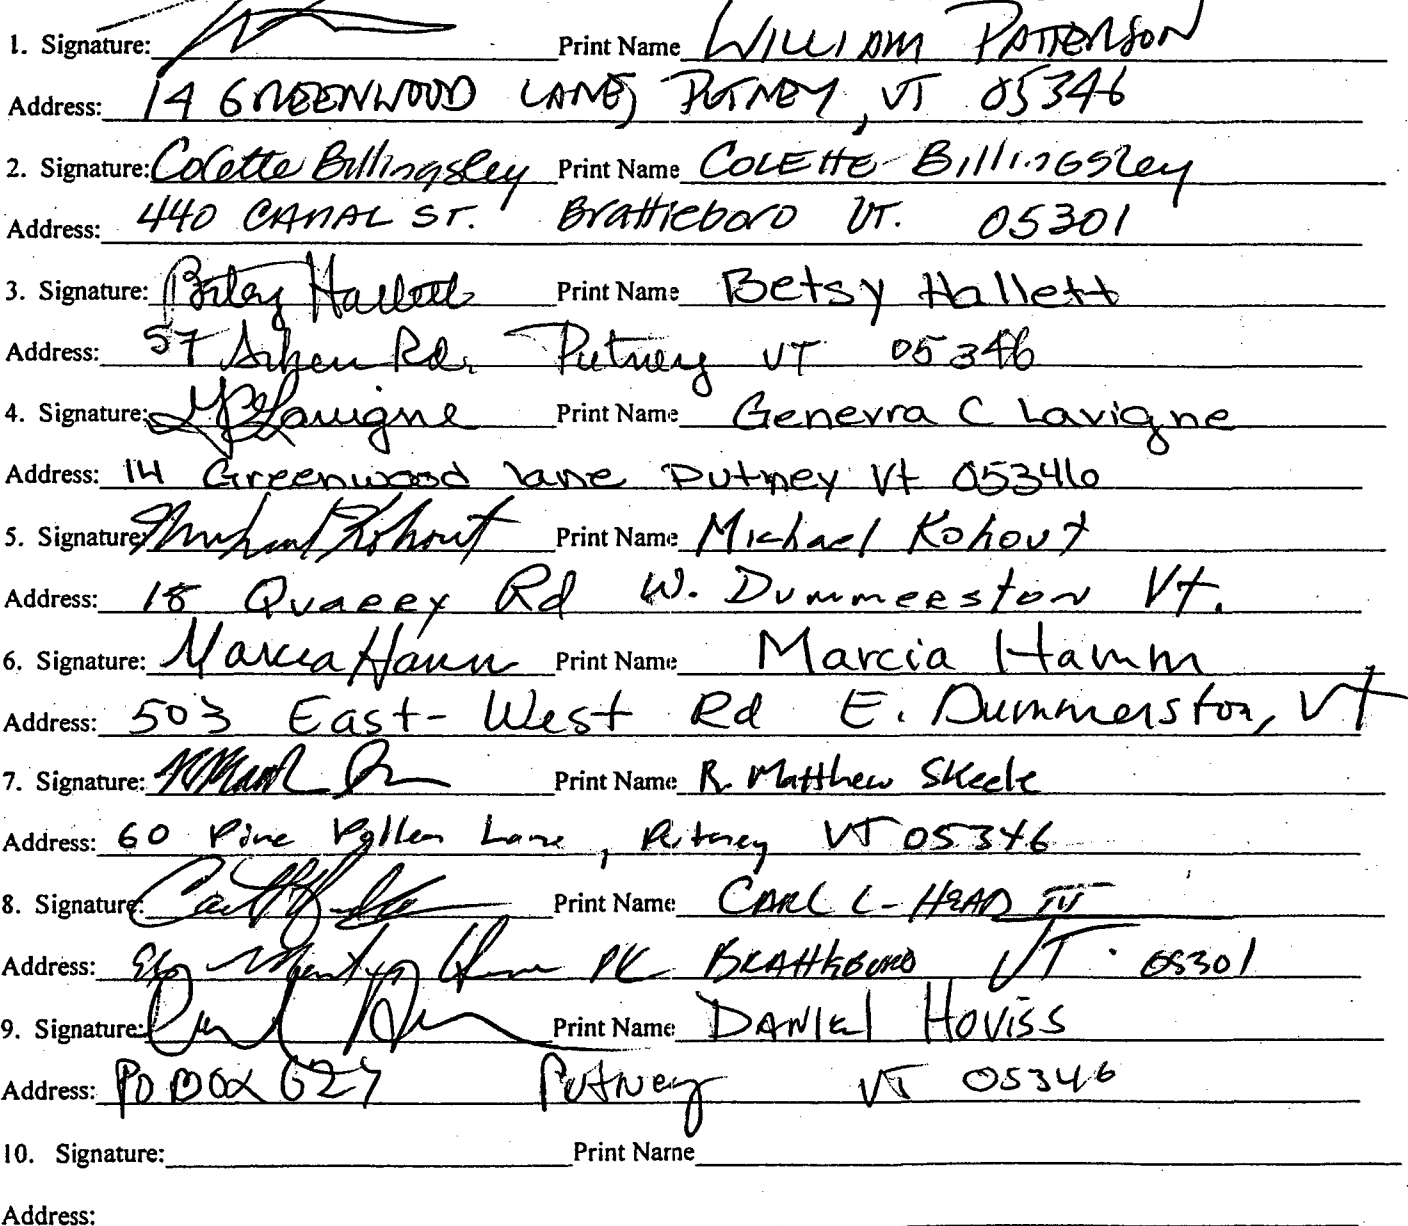 1. Signature: Print Name WILLIAM PATTERSON
Address: 14 GREENWOOD LANE, PUTNEY, VT 05346
2. Signature: Colette Billingsley Print Name COLETTE Billingsley
Address: 440 CANAL ST. Brattleboro VT. 05301
3. Signature: Betsy Hallett Print Name Betsy Hallett
Address: 57 Rd. Putney VT 05346
4. Signature: Lavigne Print Name Genevra C Lavigne
Address: 14 Greenwood Lane Putney Vt 05346
5. Signature: Michael Kohout Print Name Michael Kohout
Address: 18 Quarry Rd W. Dummerston Vt.
6. Signature: Marcia Hamm Print Name Marcia Hamm
Address: 503 East-West Rd E. Dummerston, VT
7. Signature: Print Name R. Matthew Skeele
Address: 60 Pine Pollen Lane, Putney VT 05346
8. Signature: Print Name CARL L-HEAD IV
Address: BRATTLEBORO VT. 05301
9. Signature: Print Name DANIEL HOVISS
Address: PO BOX 627 Putney VT 05346
10. Signature: Print Name
Address: